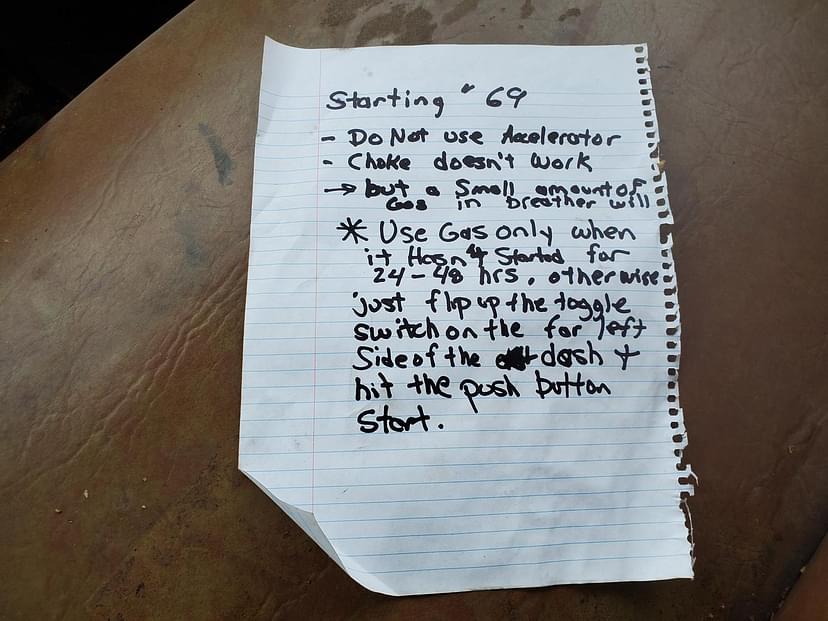 Starting " 69
- Do Not use Accelerator
- Choke doesn't work
→ but a small amount of
Gas in breather will
* Use Gas only when
it Hasn't Started for
24-48 hrs, otherwise
just flip up the toggle
switch on the far left
Side of the dash +
hit the push button
Start.